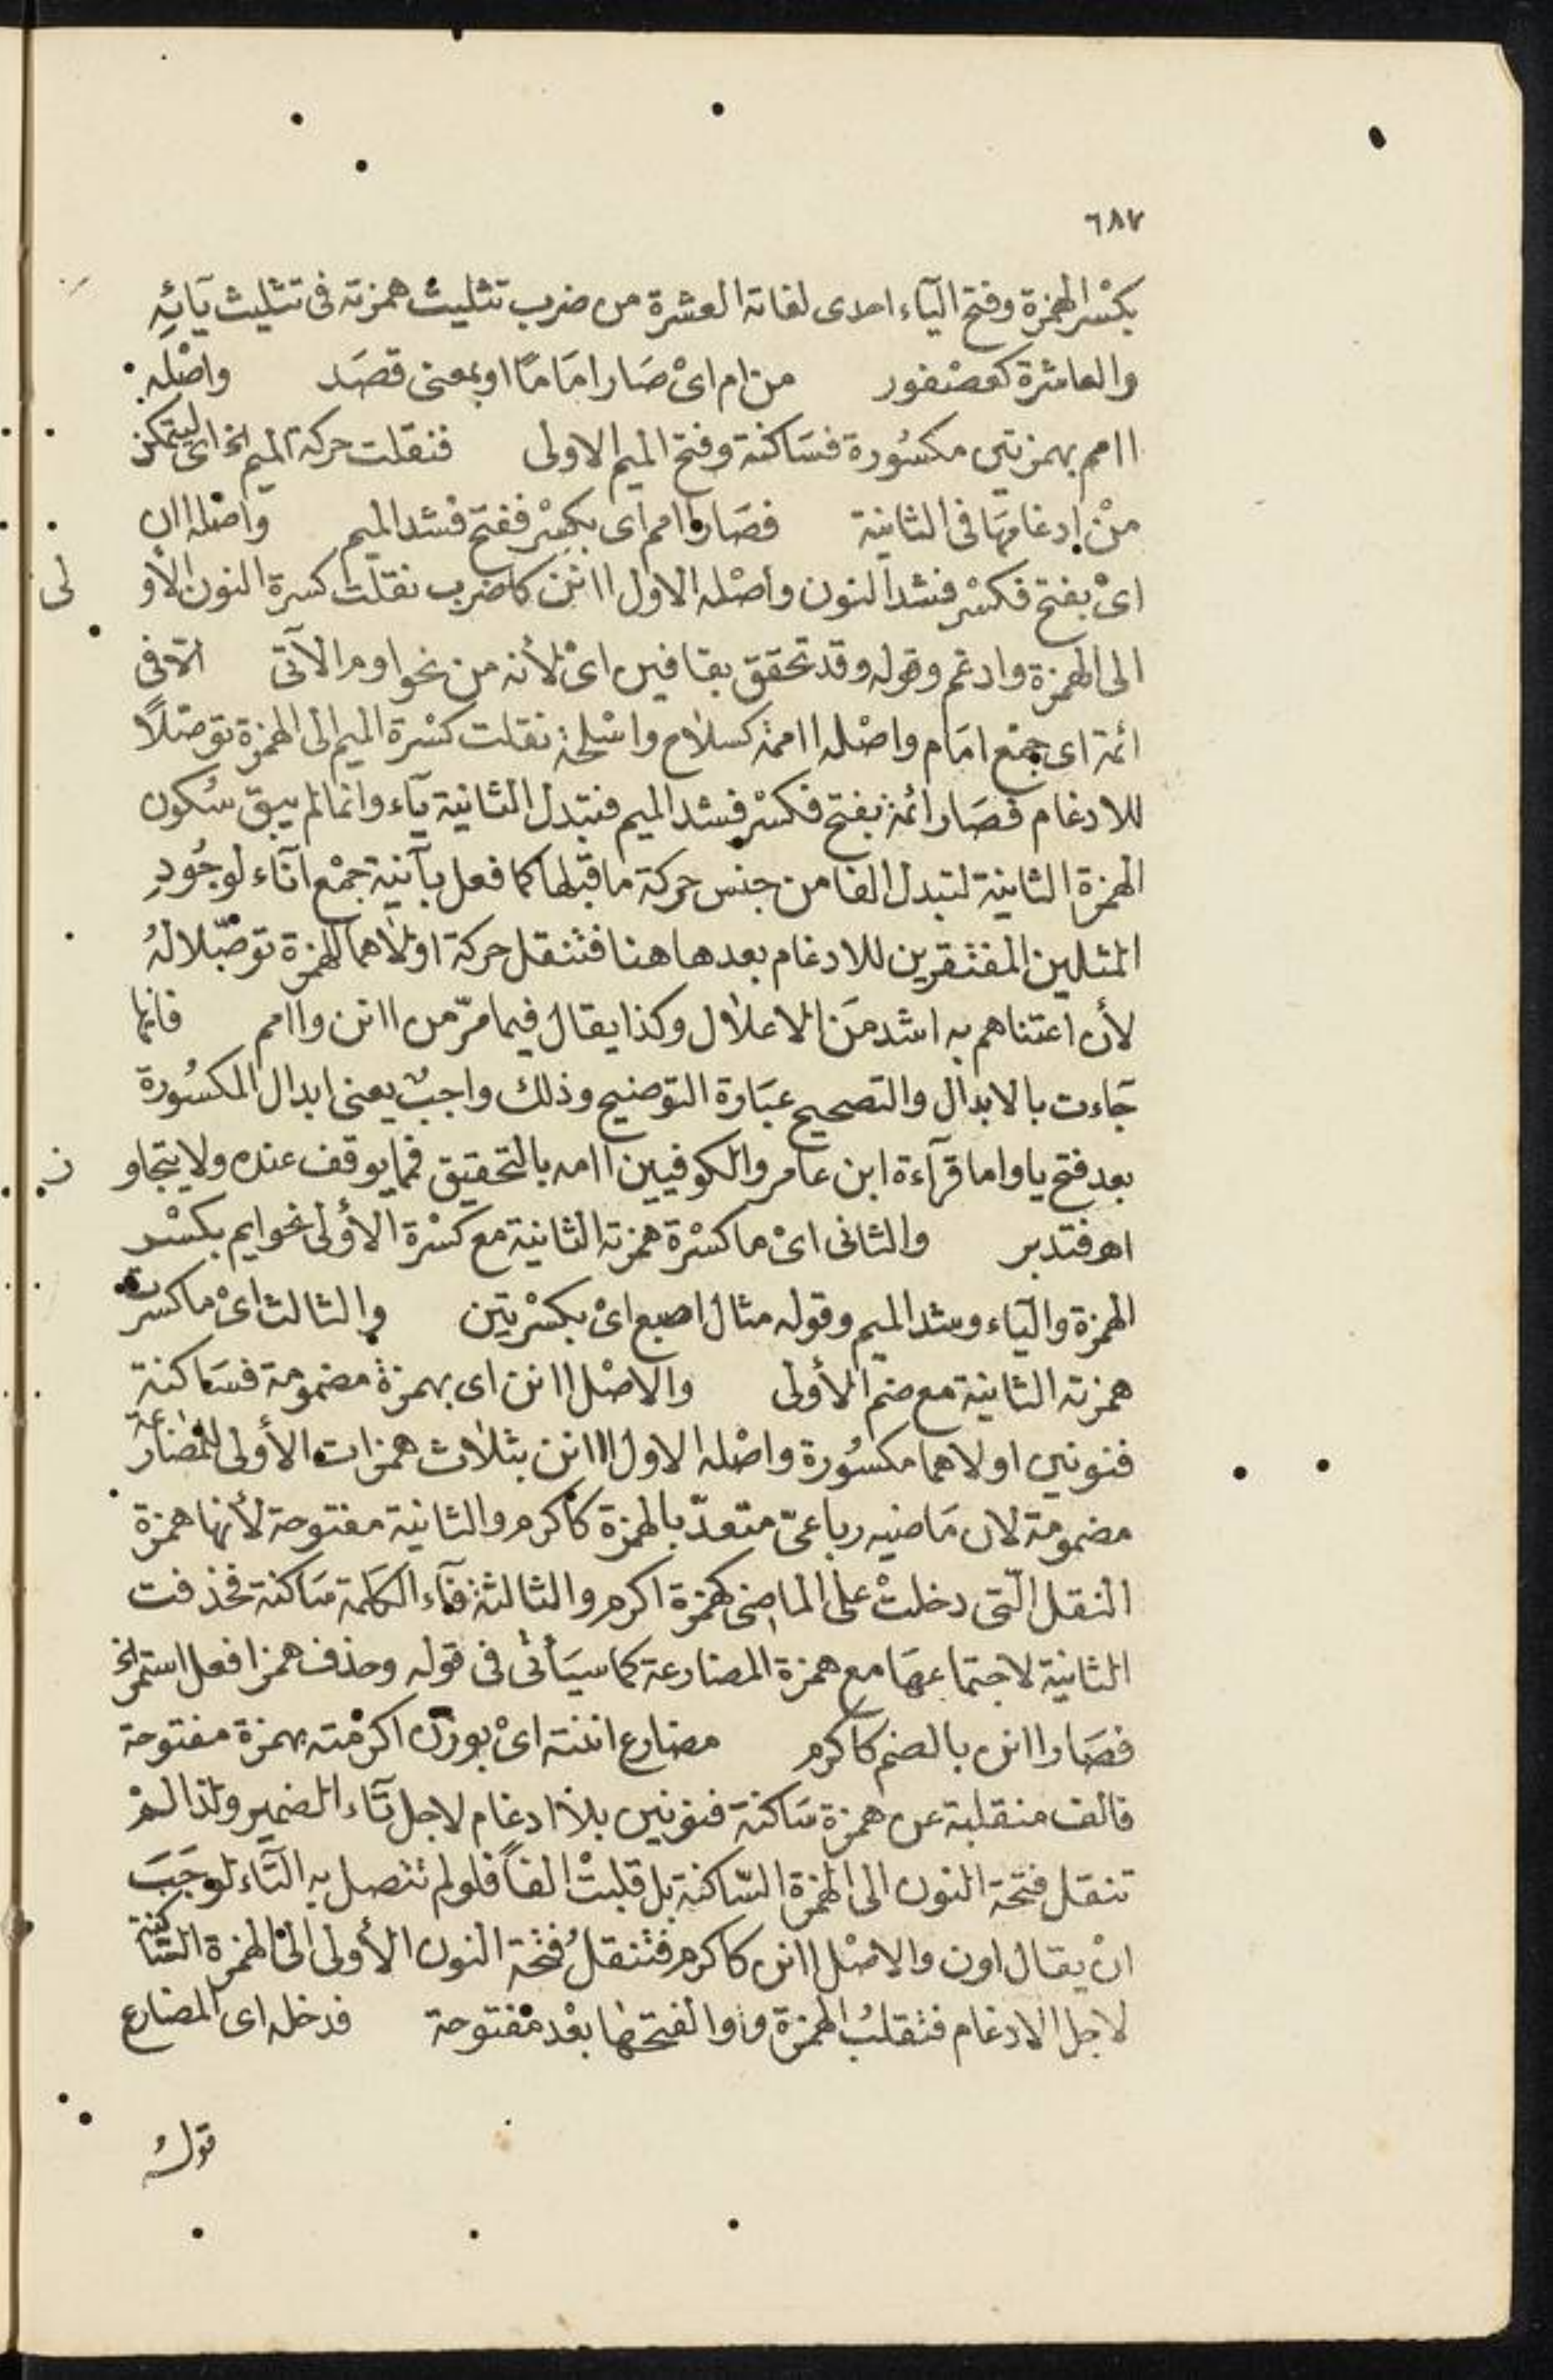 ٦٨٧
بكسْر الهمزة وفتح اليآء احدى لغاته العشرة من ضرب تثليث همزته فى تثليث يَائِه
والعاشرة كعصْفور من ام اىْ صَار امَامًا او بمعنى قصَد واصْله
اامم بهمزتين مكسُورة فسَاكنة وفتح الميم الاولى فنقلت حركة الميم الخ اى ليتمكن
منْ إدغامهَا فى الثانية فصَار اامم اى بكسْر ففتح فشد الميم واصْله اان
اىْ بفتح فكسْر فشد النون وأصْله الاول اانن كاضرب نقلت كسرة النون الأو لى
الى الهمزة وادغم وقوله وقد تحقق بقافين اىْ لأنه من نحو اوم الآتى الا فى
ائمة اى جمْع امَام واصْله اأممة كسلاح واسْلحة نقلت كسْرة الميم الى الهمزة توصّلاً
للادغام فصَار ائمة بفتح فكسْر فشد الميم فتبدل الثانية يآء وانما لم يبق سُكون
الهمزة الثانية لتبدل الفا من جنس حركة ما قبلها كما فعل بآنية جمْع انآء لوجُودِ
المثلين المفتقرين للادغام بعدها هنا فتنقل حركة اولاهما للهمزة توصّلا لهُ
لأن اعتناهم به اشد منَ الاعلال وكذا يقال فيما مرّ من اانن واامم فانها
جَاءت بالابدال والتصحيح عبَارة التوضيح وذلك واجبٌ يعنى ابدال المكسُورة
بعد فتح يا واما قرآءة ابن عامر والكوفيين اامه بالتحقيق فمما يوقف عنده ولا يتجاو ز
اهـ فتدبر والثانى اىْ ما كسْرة همزته الثانية مع كسْرة الأولى نحو ايم بكسْر
الهمزة واليَاء وشد الميم وقوله مثال اصبع اىْ بكسْرتين والثالث اىْ ما كسرت
همزته الثانية مع ضم الأولى والاصْل اانن اى بهمزة مضمومة فسَاكنة
فنونين اولاهما مكسُورة واصْله الاول ااانن بثلاث همزات الأولى للمضارعة
مضمومة لان مَاضيه رباعىّ متعدّ بالهمزة كأكرم والثانية مفتوحة لأنها همزة
النقل الّتى دخلتْ على الماضى كهمزة اكرم والثالثة فآء الكلمة سَاكنة فحذفت
الثانية لاجتماعهَا مع همزة المضارعة كما سيَأتى فى قوله وحذف همز افعل استمر الخ
فصَار اانن بالضم كاكرم مضارع اننته اىْ بوزن اكرمْته بهمزة مفتوحة
فالف منقلبة عن همزة سَاكنة فنونين بلا ادغام لاجل تآء الضمير ولذا لمْ
تنقل فتحة النون الى الهمزة السّاكنة بل قلبتْ الفاً فلو لم تتصل به التّاء لوجَبَ
انْ يقال اون والاصْل اانن كاكرم فتنقلُ فتْحة النون الأولى الى الهمزة السّاكنة
لاجل الادغام فتقلبُ الهمزة واوا لفتحهَا بعْد مفتوحة فدخله اى المضارع
قولهُ